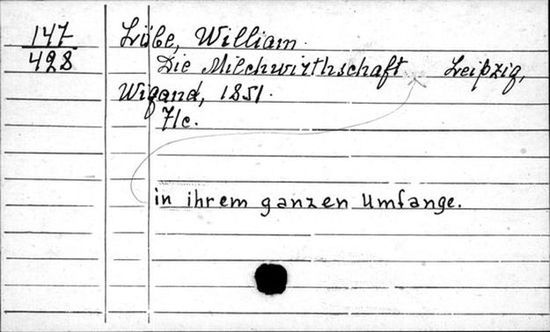 147
498
Löbe, William.
Die Milchwirthschaft Leipzig,
Wigand, 1851.
7lc.
in ihrem ganzen Umfange.